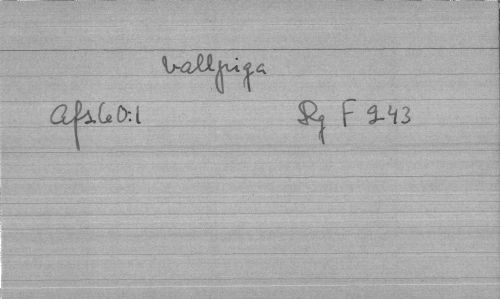 vallpiga
Afs. 60:1 Rg F 243